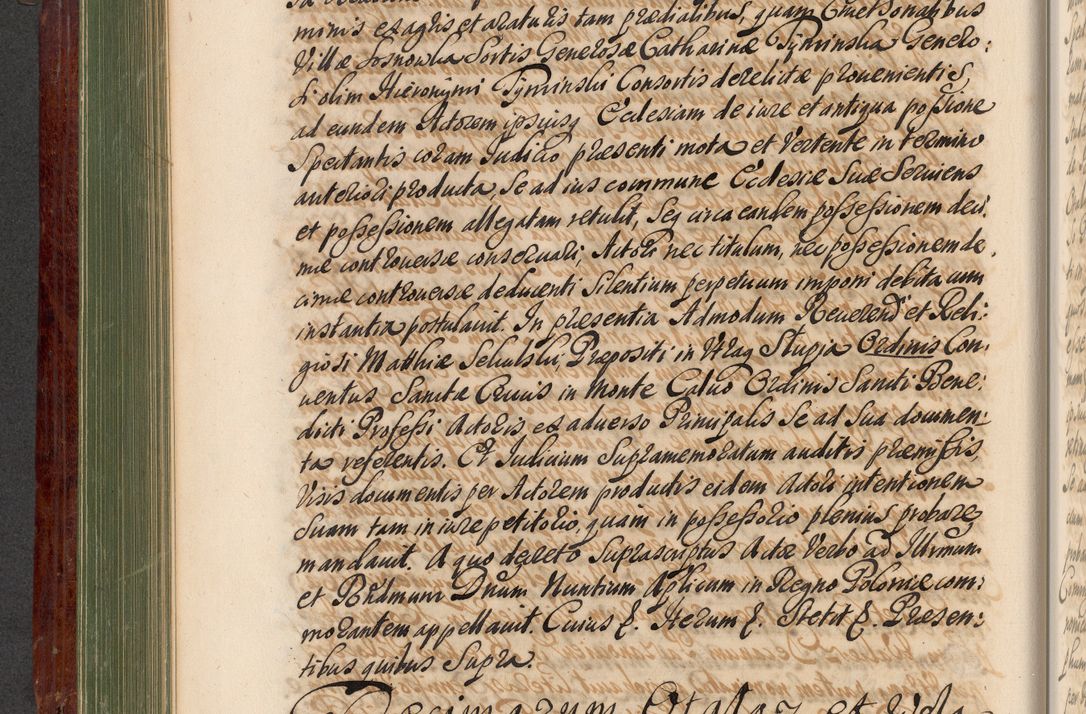 minis ex agris et araturis tam prædialibus, quam Cmethonalibus
Villæ Sosnowka Sortis Generosæ Catharinæ Tyminska Genero:
si olim Hieronymi Tyminski Consortis derelictæ provenientis,
ad eundem Actorem ipsiusq Ecclesiam de iure et antiqua poßione
Spectantis coram Judicio præsenti mota et Vertente in termino
anteriori producta, Se ad ius commune Ecclesiæ Suæ Serviens
et possessionem allegatam retulit, Seq circa eandem possessionem deci:
mæ controversæ conservari, Actori nec titulum, nec possessionem de:
cimæ controversæ deducenti Silentium perpetuum imponi debita cum
instantia postulavit. In præsentia Admodum Reverendi et Reli:
giosi Matthiæ Sekulski, Præpositi in Wrag Stupia Ordinis Con:
ventus Sanctæ Crucis in Monte Calvo Ordinis Sancti Bene:
dicti Professi Actoris ex adverso Principalis Se ad Sua documen:
ta referentis. Et Judicium Supramemoratum auditis præmißis,
Visis documentis per Actorem productis eidem Actori intentionem
Suam tam in iure petitorio, quam in possessorio plenius probare
mandavit. A quo decreto Suprascriptus Actor Verbo ad Illrmum
et Rndmum Dnum Nuntium Aplicum in Regno Poloniæ com:
morantem appellavit. Cuius &. Iterum &. Stetit &. Præsen:
tibus quibus Supra.
Decimarum